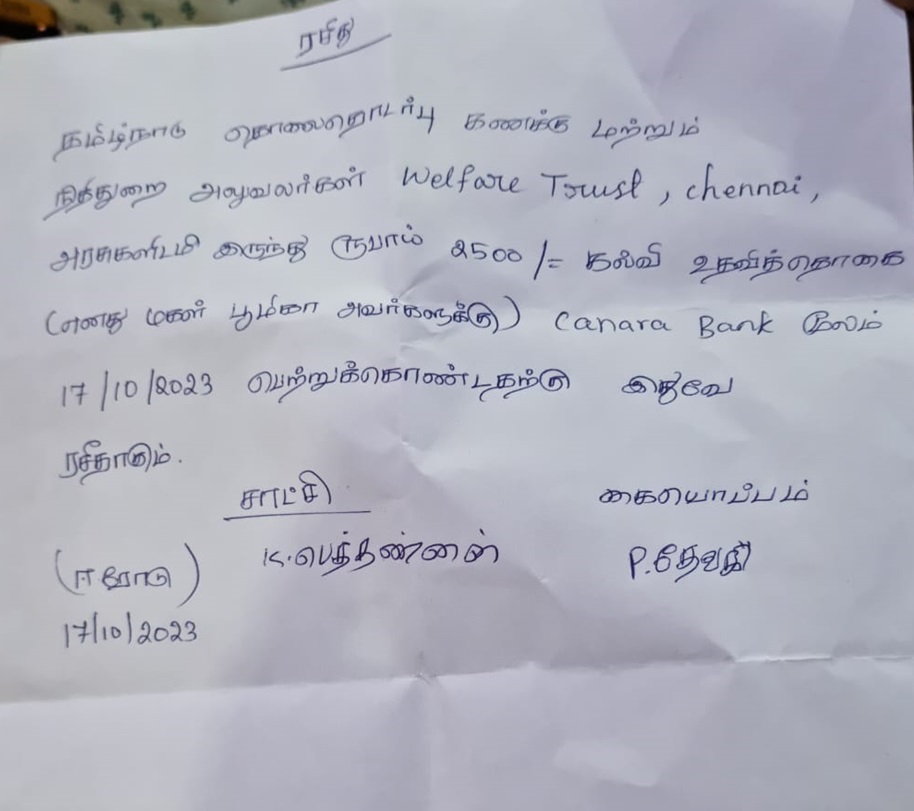 ரசீது
தமிழ்நாடு தொலைதொடர்பு கணக்கு மற்றும்
நிதித்துறை அலுவலர்கள் Welfare Trust, chennai,
இருந்து ரூபாய் 2500/= கல்வி உதவித்தொகை
(எனது மகள் பூமிகா அவர்களுக்கு) Canara Bank மூலம்
17/10/2023 பெற்றுக்கொண்டதற்கு இதுவே
ரசீதாகும்.
சாட்சி கையொப்பம்
(ஈரோடு) K.பெத்தண்ணன் P.தேவகி
17/10/2023